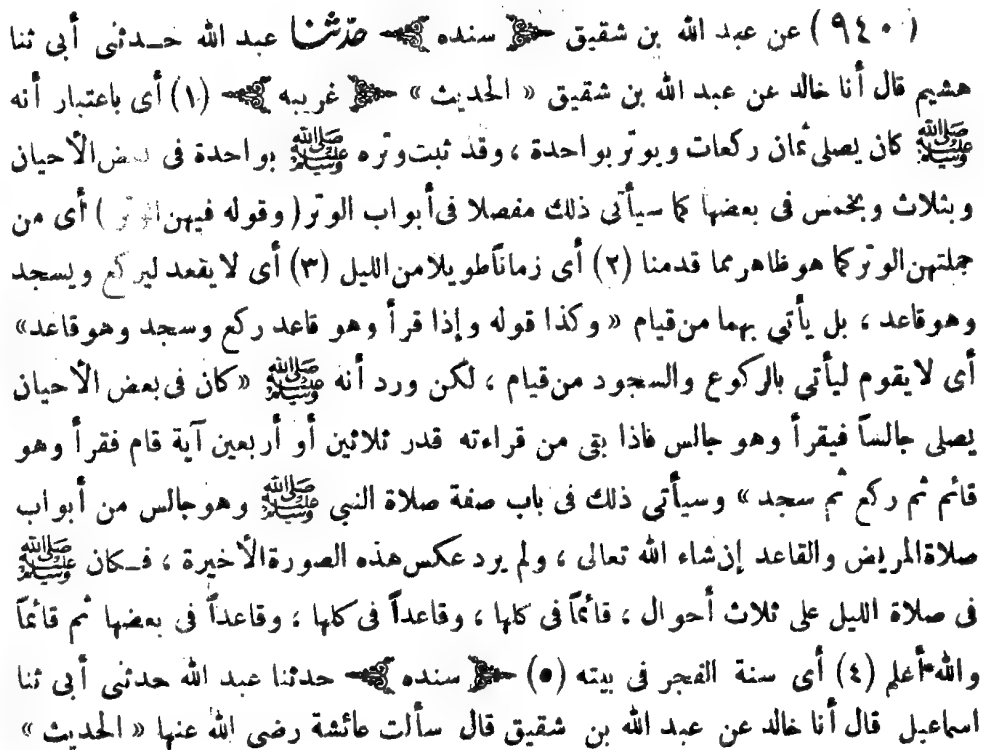 (٩٤٠) عن عبد الله بن شقيق سنده حدّثنا عبد الله حدثنى أبى ثنا
هشيم قال أنا خالد عن عبد الله بن شقيق « الحديث » غريبه (١) أى باعتبار أنه
ﷺ كان يصلى ثمان ركعات ويوتر بواحدة ، وقد ثبت وتره ﷺ بواحدة فى بعض الأحيان
وبثلاث وبخمس فى بعضها كما سيأتى ذلك مفصلا فى أبواب الوتر ( وقوله فيهن الوتر ) أى من
جملتهن الوتر كما هو ظاهر مما قدمنا (٢) أى زماناً طويلا من الليل (٣) أى لا يقعد ليركع ويسجد
وهو قاعد ، بل يأتى بهما من قيام « وكذا قوله وإذا قرأ وهو قاعد ركع وسجد وهو قاعد »
أى لا يقوم ليأتى بالركوع والسجود من قيام ، لكن ورد أنه ﷺ « كان فى بعض الأحيان
يصلى جالساً فيقرأ وهو جالس فاذا بقى من قراءته قدر ثلاثين أو أربعين آية قام فقرأ وهو
قائم ثم ركع ثم سجد » وسيأتى ذلك فى باب صفة صلاة النبى ﷺ وهو جالس من أبواب
صلاة المريض والقاعد إن شاء الله تعالى ، ولم يرد عكس هذه الصورة الأخيرة ، فـكان ﷺ
فى صلاة الليل على ثلاث أحوال ، قائماً فى كلها ، وقاعداً فى كلها ، وقاعداً فى بعضها ثم قائماً
والله أعلم (٤) أى سنة الفجر فى بيته (٥) سنده حدثنا عبد الله حدثنى أبى ثنا
اسماعيل قال أنا خالد عن عبد الله بن شقيق قال سألت عائشة رضى الله عنها « الحديث »